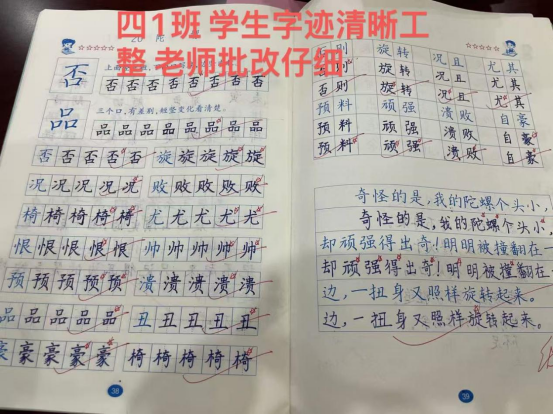 四1班 学生字迹清晰工
整 老师批改仔细
20 陀
否
否否否否否否否否
品
三个口,有差别,桩垫变化看清楚。
品品品品品品品品
否否否否否 旋旋旋旋旋
况况况况况 败败败败败
椅椅椅椅椅 尤尤尤尤尤
恨恨恨恨恨 帅帅帅帅帅
预预预预预 溃溃溃溃溃
品品品品品 丑丑丑丑丑
豪豪豪豪豪 椅椅椅椅椅
38
否则 旋转 况且 尤其
否则 旋转 况且 尤其
否则 旋转 况且 尤其
预料 顽强 溃败 自豪
预料 顽强 溃败 自豪
预料 顽强 溃败 自豪
奇怪的是,我的陀螺个头小,
奇怪的是,我的陀螺个头小,
却顽强得出奇!明明被撞翻在一
却顽强得出奇!明明被撞翻在一
边,一扭身又照样旋转起来。
边,一扭身又照样旋转起来。
39